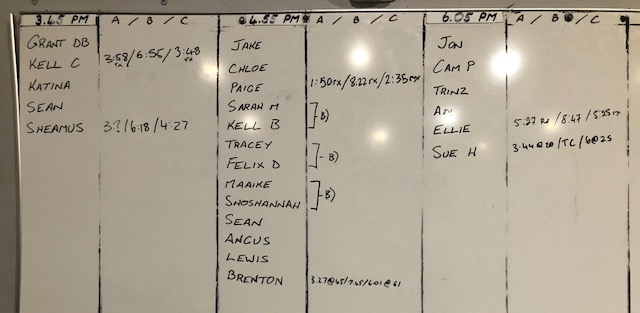 3.45 PM A / B / C
GRANT DB
KELL C 3:58/6:55/3:48
rx rx
KATINA
SEAN
SHEAMUS 3:?/6:18/4:27
4.55 PM A / B / C
JAKE
CHLOE
PAIGE 1:50rx/8:22rx/2:35rx
SARAH M
KELL B
B)
TRACEY
FELIX D
B)
MAAIKE
SHOSHANNAH
B)
SEAN
ANGUS
LEWIS
BRENTON 3.27@45/7.45/6.01@61
6.05 PM A / B / C
JON
CAM P
TRINZ
AM
ELLIE 5:27 rx /8:47 /5:35 rx
SUE H 3.44@20/TC/6@25